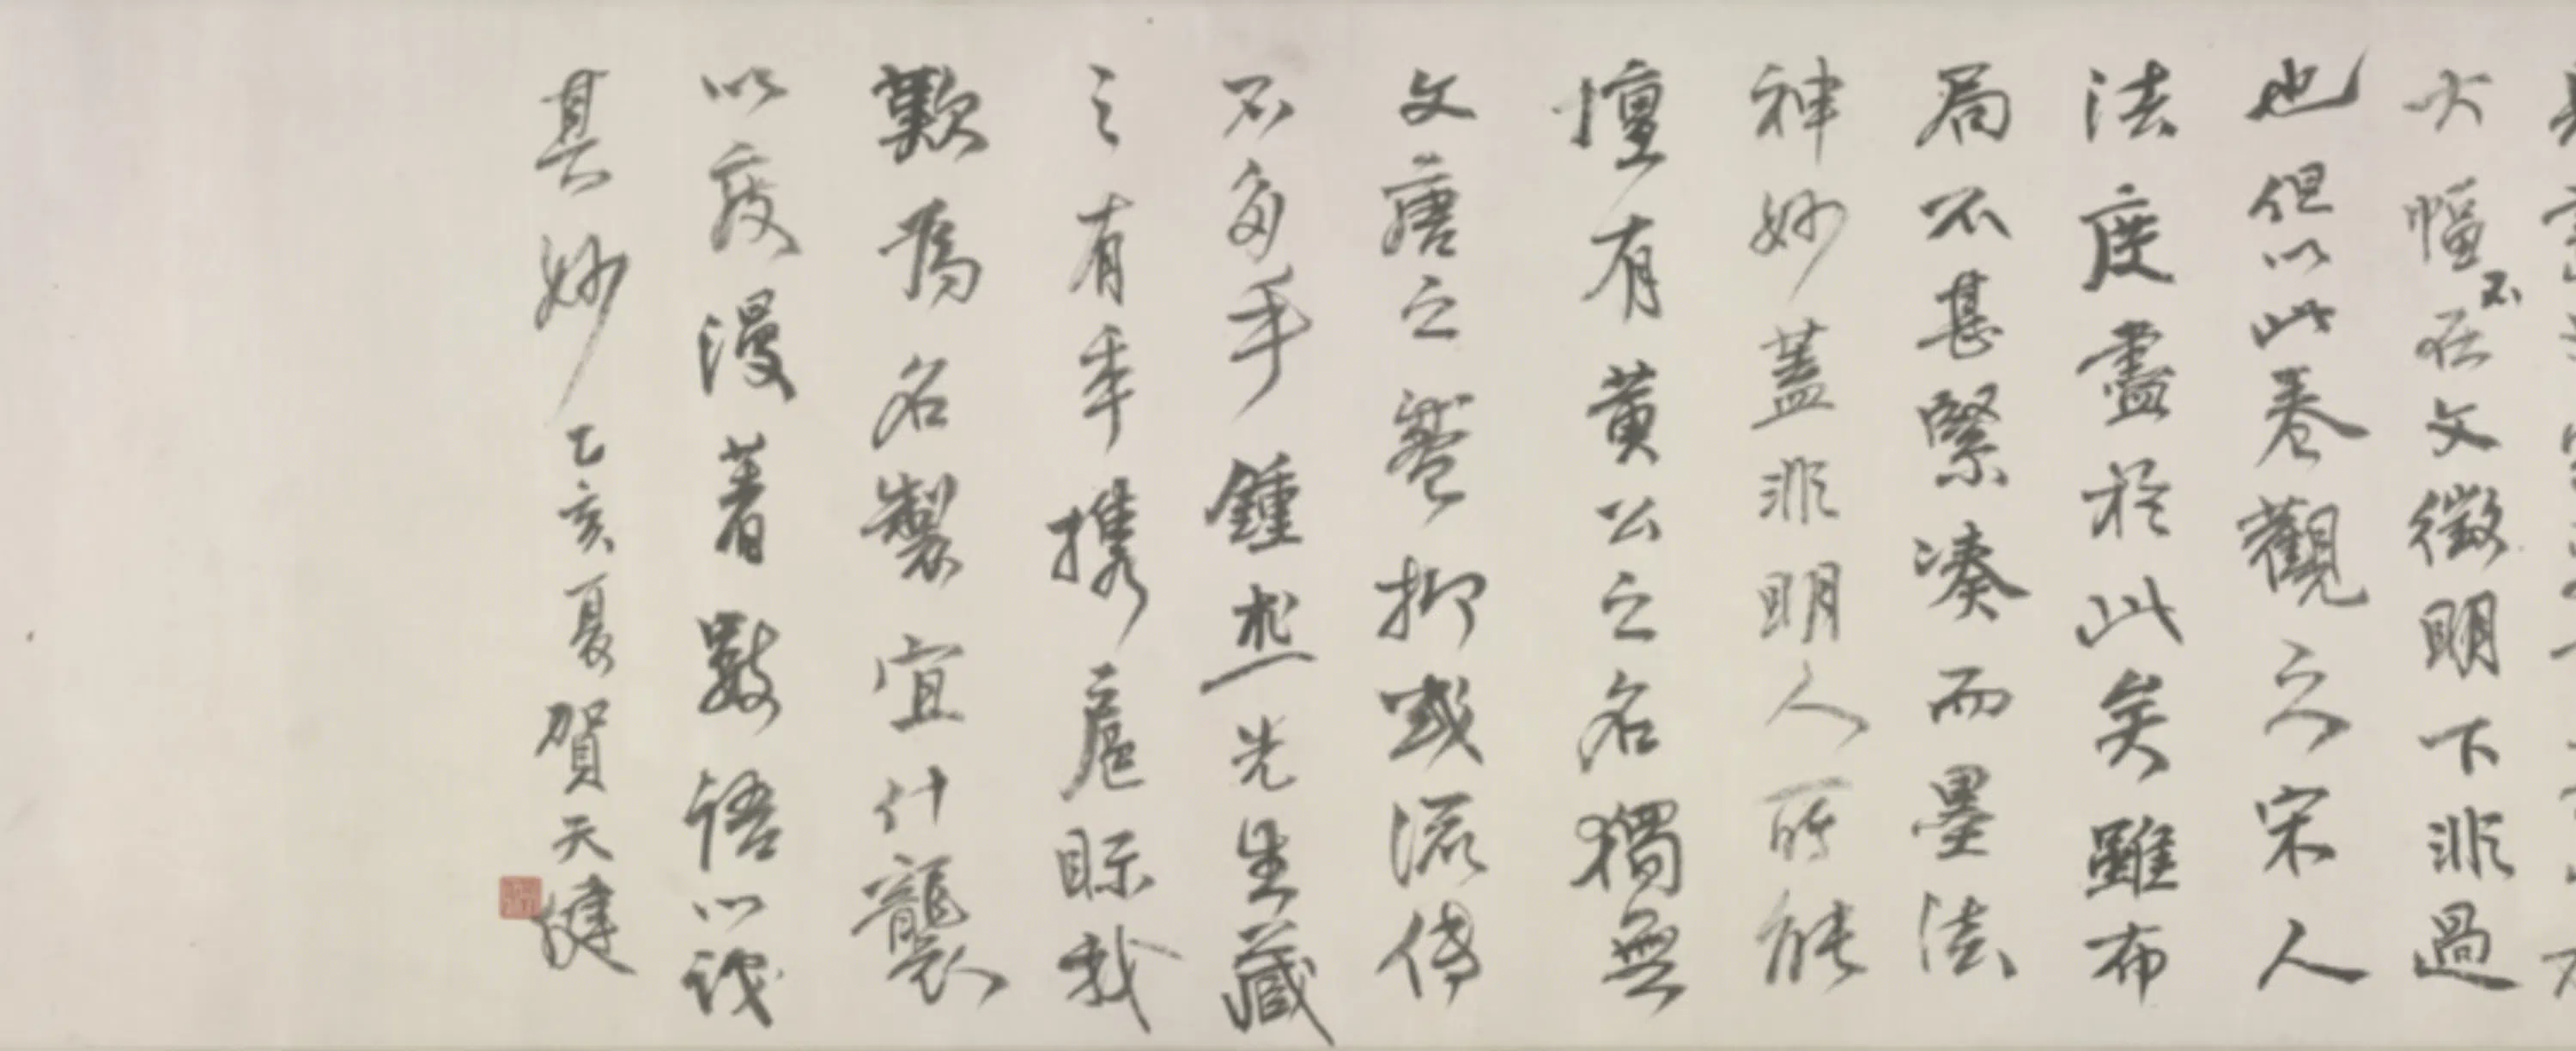 大幅不在文徵明下非過
也但以此卷觀之宋人
法度盡於此矣雖布
局不甚緊湊而墨法
神妙蓋非明人所能
擅有黃公之名獨無
文唐之譽抑或流傳
不多手鍾 先生藏
之有年攜 眎我
歎為名製宜什襲
以 漫著數語以識
其妙 乙亥夏賀天健